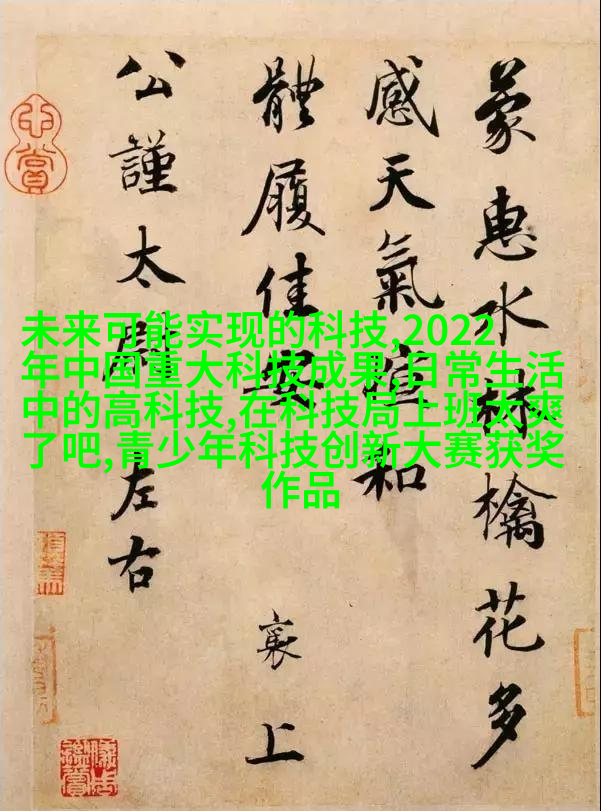 蒙惠水林檎花多
感天氣暄和
體履佳安
襄上
公謹太尉左右
未来可能实现的科技,2022
年中国重大科技成果,日常生活
中的高科技,在科技局上班太爽
了吧,青少年科技创新大赛获奖
作品